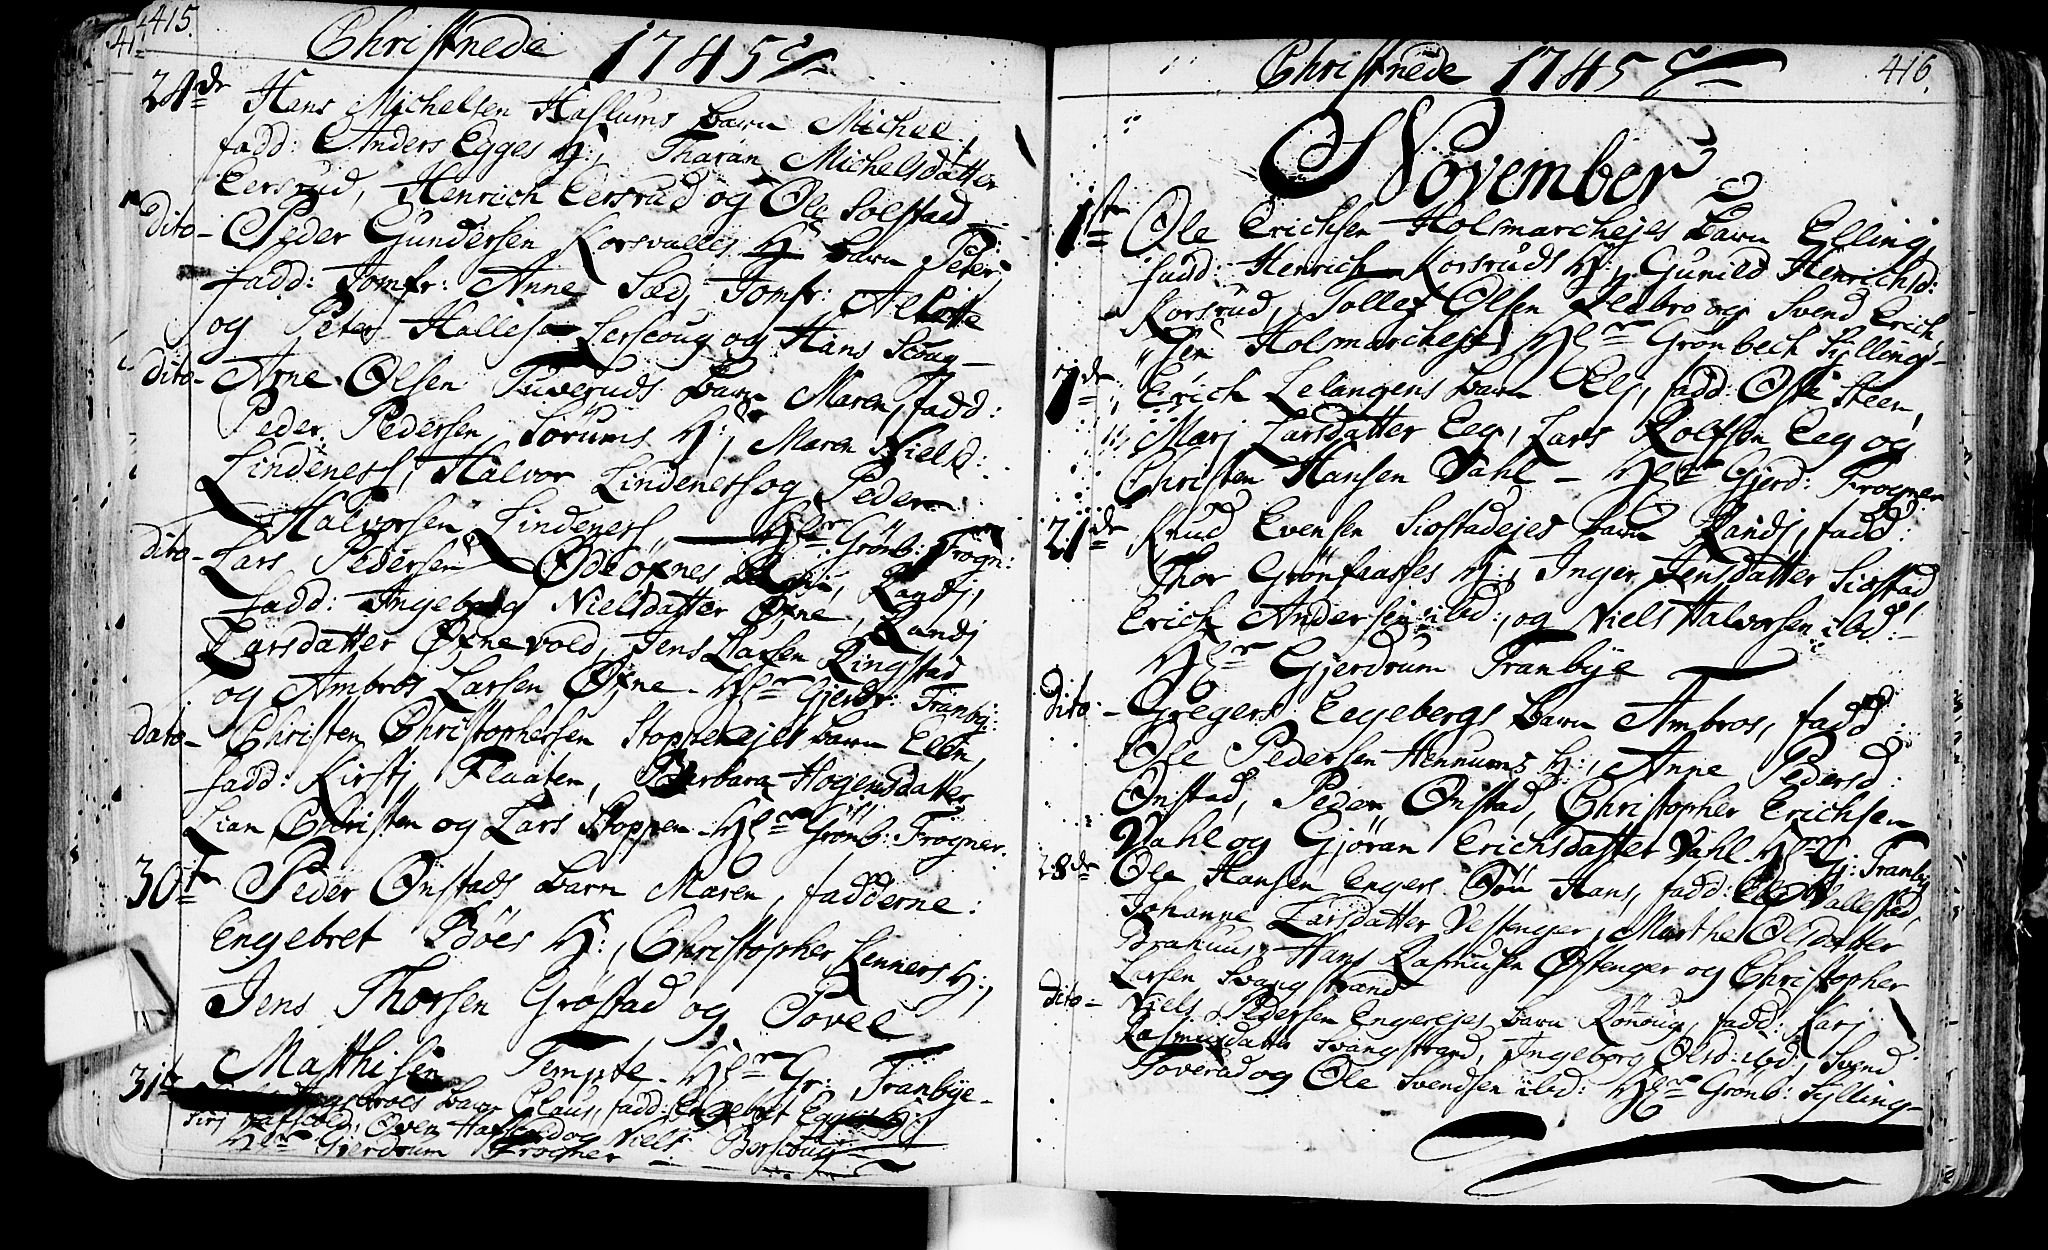 415.
Christnede 1745
24de Hans Michelsen Haslums barn Michel,
fadd: Anders Egges H:, Tharan Michelsdatter
Eersrud, Henrich Eersrud og Ole Solstad
Dito- Peder Gundersen Korsvalles H: barn Peter,
fadd: Jomfr: Anne Sæd, Jomfr:
og Peter Lerscoug og Hans Scoug-
dito- Arne Olsen Tuveruds barn Maren, fadd:
Peder Pedersen Sörums H:, Maren Nielsd:
Lindeness, Halvor Lindeness og Peder
Halvorsen Lindeness, Hr Grönb: Frogn:
dito- Lars Pedersen Randj,
fadd: Ingeborg Nielsdatter Øxne, Randj
Larsdatter Øxnevold, Jens Larsen Ringstad
og Ambros Larsen Øxne. Hr Gjerdr: Tranby:
dato- Christen Christophersen Stoppenejes barn Elen,
fadd: Kirstj Flaaten, Barbara Hogensdatter
Lian, Christen og Lars Stoppen. Hr Grönb: Frogner.
30te Peder Onstads barn Maren, fadderne:
Engebret Böes H:, Christopher Kenners H:,
Jens Thorsen Gröstad og Povel
Matthisen Tempte. Hr Gr: Tranbye-
31te barn Claus, fadd: Engebret Egges H:,
Sirj Oven og Niels Borscoug
Hr Gjerdrum Frogner
Christnede 1745 416.
November
1ste Ole Erichsen Holsmarchejes barn Elling,
fadd: Henrich Korsruds H:, Gunild Henrichsd:
Korsrud, Tollef Olsen og Svend Erich
sen Holsmarchejet, Hr Grønbech Sylling-
7de Erich Lelangens barn Elj, fadd: Ole Steen,
Marj Larsdatter Eeg, Lars Rolfsen Eeg og
Christen Hansen Dahl - Hr Gjerd: Frogner
21de Knud Evensen Siostadejes barn Randj, fadd:
Thor Grönfaasses H:, Inger Jensdatter Siostad
Erich Andersen ibd:, og Niels Halvorsen ibd:-
Hr Gjerdrum Tranbye
dito- Gregers Eegebergs barn Ambros, fadd:
Ole Pedersen Hennums H:, Anne Pedersd:
Onstad, Peder Onstad, Christopher Erichsen
Dahl og Gjøran Erichsdatter Dahl. Hr Gj: Tranby
28de Ole Hansen Engers Hans, fadd: Vallestad,
Johanne Larsdatter Vestenger, Marthe Olsdatter
Hans Rasmusen Østenger og Christopher
Larsen Svangstrand
dito- Niels Pedersen Engerejes barn Rönoug, fadd: Karj
Rasmusdatter Svangstrand, Ingeborg Olsd: ibd:, Svend
Toverud og Ole Svendsen ibd: Hr Grönb: Sylling-